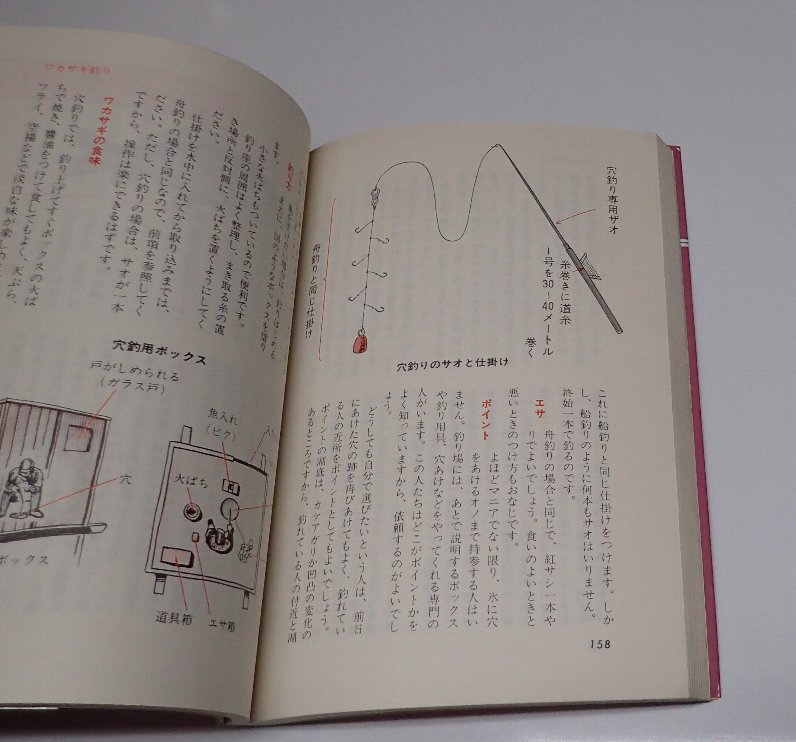 穴釣り専用ザオ
糸巻きに道糸
一号を30~40メートル
巻く
舟釣りと同じ仕掛け
穴釣りのサオと仕掛け
これに船釣りと同じ仕掛けをつけます。しか
し、船釣りのように何本もサオはいりません。
終始一本で釣るのです。
エサ 舟釣りの場合と同じで、紅サシ一本や
りでよいでしょう。食いのよいときと
悪いときのつけ方もおなじです。
ポイント よほどマニアでない限り、氷に穴
をあけるオノまで持参する人はい
ません。釣り場には、あとで説明するボックス
や釣り用具、穴あけなどをやってくれる専門の
人がいます。この人たちはどこがポイントかを
よく知っていますから、依頼するのがよいでし
ょう。
どうしても自分で選びたいという人は、前日
にあけた穴の跡を再びあけてもよく、釣れてい
る人の近所をポイントとしてもよいでしょう。
ポイントの湖底は、カケアガリか凹凸の変化の
あるところですから、釣れている人の付近と湖
158
ワカサギ釣り
ます。
小さな火ばちもついているので便利です。
釣り座の周囲はよく整理し、まき取る糸の置
き場所と反対側に、火ばちを置くようにしてく
ださい。
仕掛けを水中に入れてから取り込みまでは、
舟釣りの場合と同じなので、前項を参照してく
ださい。ただし、穴釣りの場合は、サオが一本
ですから、操作は楽にできるはずです。
ワカサギの食味
穴釣りでは、釣り上げてすぐボックスの火ば
ちで焼き、醤油をつけて食してもよく、天ぷら、
フライ、空揚などで淡白な味が楽しめ
穴釣用ボックス
戸がしめられる
(ガラス戸)
穴
ボックス
魚入れ
(ビク)
火ばち
道具箱
エサ箱